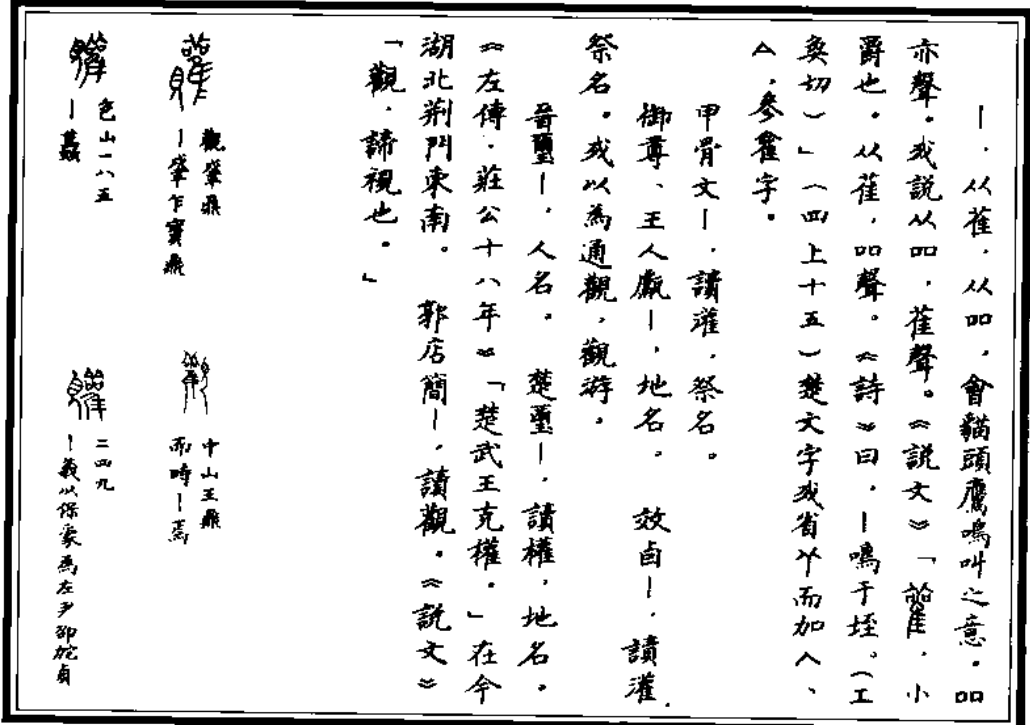 丨，从萑，从吅，會貓頭鷹鳴叫之意。吅
亦聲。或說从吅，萑聲。《說文》「雚，小
爵也。从萑，吅聲。《詩》曰，丨鳴于垤。(工
奐切)」(四上十五)楚文字或省丫而加人、
亼，參雚字。
甲骨文丨，讀灌，祭名。
御尊、王人甗丨，地名。 效卣丨，讀灌，
祭名。或以為通觀，觀游。
晉璽丨，人名。 楚璽丨，讀權，地名。
《左傳·莊公十八年》「楚武王克權。」在今
湖北荊門東南。 郭店簡丨，讀觀。《說文》
「觀，諦視也。」
觀肇鼎
丨肇乍寶鼎
中山王鼎
而時丨焉
包山一八五
丨
二四九
丨義以保豪為左尹卲㐌貞